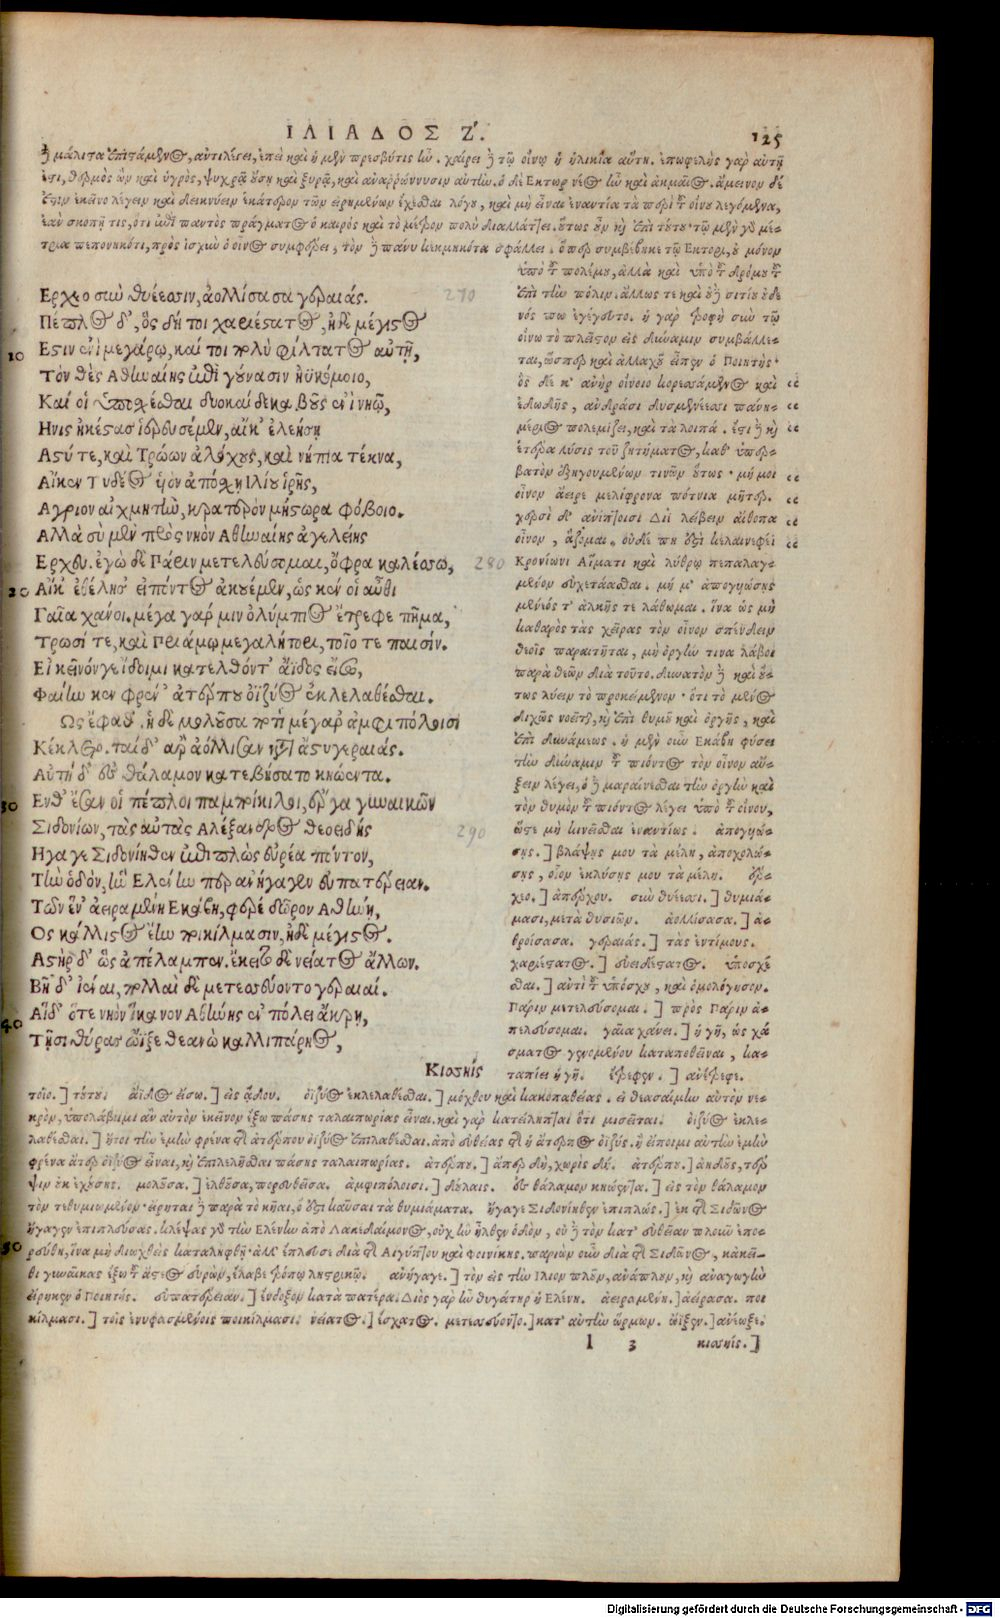 ΙΛΙΑΔΟΣ Ζ΄. 125
ἢ μάλιστα ἐπιστάμενος, ἀντιλέγει, ἐπεὶ καὶ ἡ μὲν πρεσβύτις ἦν. χαίρει ἢ τῷ οἴνῳ ἡ ἡλικία αὕτη. ἐπωφελὴς γὰρ αὐτῇ
ἐστι, θερμὸς ὢν καὶ ὑγρὸς, ψυχρᾷ οὔσῃ καὶ ξυρᾷ, καὶ ἀναρρώννυσιν αὐτήν. ὁ δὲ Εκτωρ νέος ἦν καὶ ἀκμαῖος. ἄμεινον δέ
ἐστιν ἐκεῖνο λέγειν καὶ δεικνύειν ἑκάτερον τῶν εἰρημένων ἔχεσθαι λόγου, καὶ μὴ εἶναι ἐναντία τὰ περὶ τοῦ οἴνου λεγόμενα,
ἐὰν σκοπῇ τις, ὅτι ἐπὶ παντὸς πράγματος ὁ καιρὸς καὶ τὸ μέτρον πολὺ διαλλάττει. οὕτως οὖν καὶ ἐπὶ τούτου· τῷ μὲν γὰρ μέ-
τρια πεπονηκότι, πρὸς ἰσχὺν ὁ οἶνος συμφέρει, τὸν ἢ πάνυ κεκμηκότα σφάλλει. ὅπερ συμβέβηκε τῷ Εκτορι, οὐ μόνον
Ερχεο σὺν θυέεσσιν, ἀολλίσσασα γεραιάς. 270
Πέπλος δ᾽, ὅς δή τοι χαριέστατος, ἠδὲ μέγιστος
10 Εστιν ἐνὶ μεγάρῳ, καί τοι πολὺ φίλτατος αὐτῇ,
Τὸν θὲς Αθηναίης ἐπὶ γούνασιν ἠϋκόμοιο,
Καί οἱ ὑποσχέσθαι δυοκαίδεκα βοῦς ἐνὶ νηῷ,
Ηνις ἠκέστας ἱερευσέμεν, αἴκ᾽ ἐλεήσῃ
Αστύ τε, καὶ Τρώων ἀλόχους, καὶ νήπια τέκνα,
Αἴκεν Τυδέος υἱὸν ἀπόσχῃ Ιλίου ἱρῆς,
Αγριον αἰχμητὴν, κρατερὸν μήστωρα φόβοιο.
Αλλὰ σὺ μὲν πρὸς νηὸν Αθηναίης ἀγελείης
Ερχευ. ἐγὼ δὲ Πάριν μετελεύσομαι, ὄφρα καλέσσω, 280
20 Αἴκ᾽ ἐθέλησ᾽ εἰπόντος ἀκουέμεν, ὥς κέν οἱ αὖθι
Γαῖα χάνοι. μέγα γάρ μιν ὀλύμπιος ἔτρεφε πῆμα,
Τρωσί τε, καὶ Πριάμῳ μεγαλήτορι, τοῖό τε παισίν.
Εἰ κεῖνόν γε ἴδοιμι κατελθόντ᾽ ἄϊδος εἴσω,
Φαίην κεν φρέν᾽ ἀτέρπου ὀϊζύος ἐκλελαθέσθαι.
Ως ἔφαθ᾽. ἡ δὲ μολοῦσα ποτὶ μέγαρ᾽ ἀμφιπόλοισι
Κέκλετο. ταὶ δ᾽ ἂρ ἀόλλισσαν κατὰ ἄστυ γεραιάς.
Αὐτὴ δ᾽ ἐς θάλαμον κατεβήσατο κηώεντα.
30 Ενθ᾽ ἔσαν οἱ πέπλοι παμποίκιλοι, ἔργα γυναικῶν
Σιδονίων, τὰς αὐτὰς Αλέξανδρος θεοειδὴς 290
Ηγαγε Σιδονίηθεν ἐπιπλὼς εὐρέα πόντον,
Τὴν ὁδὸν, ἣν Ελένην περ ἀνήγαγεν εὐπατέρειαν.
Τῶν ἕν᾽ ἀειραμένη Εκάβη, φέρε δῶρον Αθήνῃ,
Ος κάλλιστος ἔην ποικίλμασιν, ἠδὲ μέγιστος.
Αστὴρ δ᾽ ὣς ἀπέλαμπεν. ἔκειτο δὲ νείατος ἄλλων.
Βῆ δ᾽ ἰέναι, πολλαὶ δὲ μετεσσεύοντο γεραιαί.
Αἵδ᾽ ὅτε νηὸν ἵκανον Αθήνης ἐν πόλει ἄκρῃ,
40 Τῇσι θύρας ὤϊξε θεανὼ καλλιπάρῃος,
Κισσηίς
ὑπὸ τοῦ πολέμου, ἀλλὰ καὶ ὑπὸ τοῦ δρόμου τοῦ
ἐπὶ τὴν πόλιν. ἄλλως τε καὶ οὐ σιτίου οὐδε
νός πω ἐγέγευτο. ἡ γὰρ τροφὴ σὺν τῷ
οἴνῳ τὸ πλεῖστον εἰς δύναμιν συμβάλλε-
ται, ὥσπερ καὶ ἀλλαχοῦ εἶπεν ὁ Ποιητής·
ὃς δέ κ᾽ ἀνὴρ οἴνοιο κορεσσάμενος καὶ
ἐδωδῆς, ἀνδράσι δυσμενέεσσι πανη-
μέριος πολεμίζει, καὶ τὰ λοιπά. ἔστι ἢ καὶ
ἑτέρα λύσις τοῦ ζητήματος, καθ᾽ ὑπέρ-
βατὸν ἐξηγουμένων τινῶν οὕτως· μή μοι
οἶνον ἄειρε μελίφρονα πότνια μῆτερ.
χερσὶ δ᾽ ἀνίπτοισι Διῒ λείβειν αἴθοπα
οἶνον, ἅζομαι. οὐδέ πη ἔστι κελαινεφέϊ
Κρονίωνι Αἵματι καὶ λύθρῳ πεπαλαγ-
μένον εὐχετάασθαι. μή μ᾽ ἀπογυιώσῃς
μένεός τ᾽ ἀλκῆς τε λάθωμαι. ἵνα ὡς μὴ
καθαρὸς τὰς χεῖρας τὸν οἶνον σπένδειν
θεοῖς παραιτῆται, μὴ ὀργήν τινα λάβοι
παρὰ θεῶν διὰ τοῦτο. δυνατὸν ἢ καὶ οὕ-
τως λύειν τὸ προκείμενον· ὅτι τὸ μένος
διχῶς νοεῖται, καὶ ἐπὶ θυμοῦ καὶ ὀργῆς, καὶ
ἐπὶ δυνάμεως. ἡ μὲν οὖν Εκάβη φύσει
τὴν δύναμιν τοῦ πιόντος τὸν οἶνον αὔ-
ξειν λέγει, ὁ ἢ μαραίνεσθαι τὴν ὀργὴν καὶ
τὸν θυμὸν τοῦ πιόντος λέγει ὑπὸ τοῦ οἴνου,
ὥστε μὴ κινεῖσθαι ἐναντίως. ἀπογυιώ-
σῃς.] βλάψῃς μου τὰ μέλη, ἀποχολώ-
σῃς, οἷον ἐκλύσῃς μου τὰ μέλη. ἔρ-
χεο.] ἀπέρχου. σὺν θυέεσσι.] θυμιά-
μασι, μετὰ θυσιῶν. ἀολλίσασα.] ἀ-
θροίσασα. γεραιάς.] τὰς ἐντίμους.
χαριέστατος.] εὐειδέστατος. ὑποσχέ
σθαι.] ἀντὶ τοῦ ὑπόσχου, καὶ ὁμολόγησον.
Πάριν μετελεύσομαι.] πρὸς Πάριν ἀ-
πελεύσομαι. γαῖα χάνει.] ἡ γῆ, ὡς χά
σματος γενομένου καταποθεῖναι, κα-
ταπίει ἡ γῆ. ἔτρεφεν.] ἀνέτρεφε.
τοῖο.] τούτου. ἄϊδος εἴσω.] εἰς ᾅδου. ὀϊζύος ἐκλελαθέσθαι.] μόχθου καὶ κακοπαθείας. εἰ θεασαίμην αὐτὸν νε-
κρὸν, ὑπολάβοιμι ἂν αὐτὸν ἐκεῖνον ἔξω πάσης ταλαιπωρίας εἶναι. καὶ γὰρ κατείληπται ὅτι μισεῖται. ὀϊζύος ἐκλε-
λαθέσθαι.] ἤτοι τὴν ἐμὴν φρένα τῆς ἀτέρπου ὀϊζύος ἐπιλαθέσθαι. ἀπὸ εὐθείας τῆς ἡ ἄτερπος ὀϊζύς. ἢ εἴποιμι αὐτὴν ἐμὴν
φρένα ἄτερ ὀϊζύος εἶναι, καὶ ἐπιλελῆσθαι πάσης ταλαιπωρίας. ἀτέρπου.] ἅπερ δὴ, χωρὶς δή. ἀτέρπου.] ἀηδοῦς, τέρ
ψιν οὐκ ἐχούσης. μολοῦσα.] ἐλθοῦσα, πορευθεῖσα. ἀμφιπόλοισι.] δούλαις. ἐς θάλαμον κηώεντα.] εἰς τὸν θάλαμον
τὸν τεθυμιωμένον· εἴρηται ἢ παρὰ τὸ κῆαι, ὅ ἐστι καῦσαι τὰ θυμιάματα. ἤγαγε Σιδονίηθεν ἐπιπλώς.] ἐκ τῆς Σιδῶνος
ἤγαγεν ἐπιπλεύσας. κλέψας γὰρ τὴν Ελένην ἀπὸ Λακεδαίμονος, οὐχ ἣν ἦλθεν ὁδὸν, οὐ ἢ τὸν κατ᾽ εὐθεῖαν πλοῦν ἐπο-
50 ρεύθη, ἵνα μὴ διωχθεὶς καταληφθῇ· ἀλλ᾽ ἔπλευσε διὰ τῆς Αἰγύπτου καὶ Φοινίκης. παριὼν οὖν διὰ τῆς Σιδῶνος, κἀκεῖ-
θι γυναῖκας ἔξω τοῦ ἄστεος εὑρὼν, ἔλαβε τρόπῳ λῃστρικῷ. ἀνήγαγε.] τὸν εἰς τὴν Ιλιον πλοῦν, ἀνάπλουν, καὶ ἀναγωγὴν
εἴρηκεν ὁ Ποιητής. εὐπατέρειαν.] ἔνδοξον κατὰ πατέρα. Διὸς γὰρ ἦν θυγάτηρ ἡ Ελένη. ἀειραμένη.] ἀείρασα. ποι
κίλμασι.] τοῖς ἐνυφασμένοις ποικίλμασι. νείατος.] ἔσχατος. μετεσσεύοντο.] κατ᾽ αὐτὴν ὥρμων. ᾤϊξεν.] ἀνέωξε.
l 3 κισσηίς.]
Digitalisierung gefördert durch die Deutsche Forschungsgemeinschaft - DFG